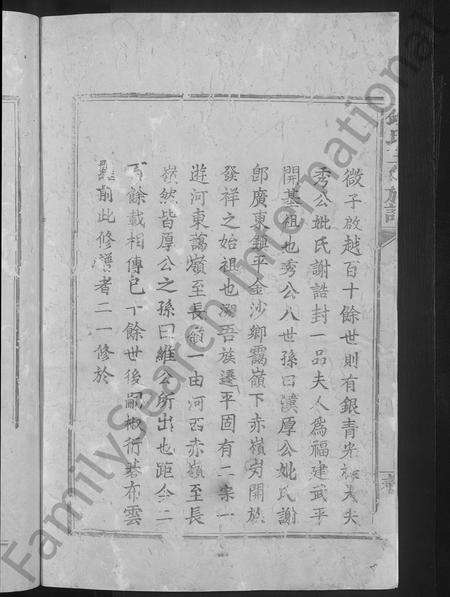 微子啟越百十餘世則有銀青光祿大夫
秀公妣氏謝誥封一品夫人為福建武平
開基祖也秀公八世孫曰漢厚公妣氏謝
即廣東鎮平金沙鄉靄嶺下赤嶺岃開族
發祥之始祖也溯吾族遷平固有二宗一
遊河東藹嶺至長嶺一由河西赤嶺至長
嶺然皆厚公之孫曰維公所出也距今二
百餘載相傳已十餘世後嗣椒衍碁布雲
前此修譜者二一修於
氏族譜
FamilySearch International